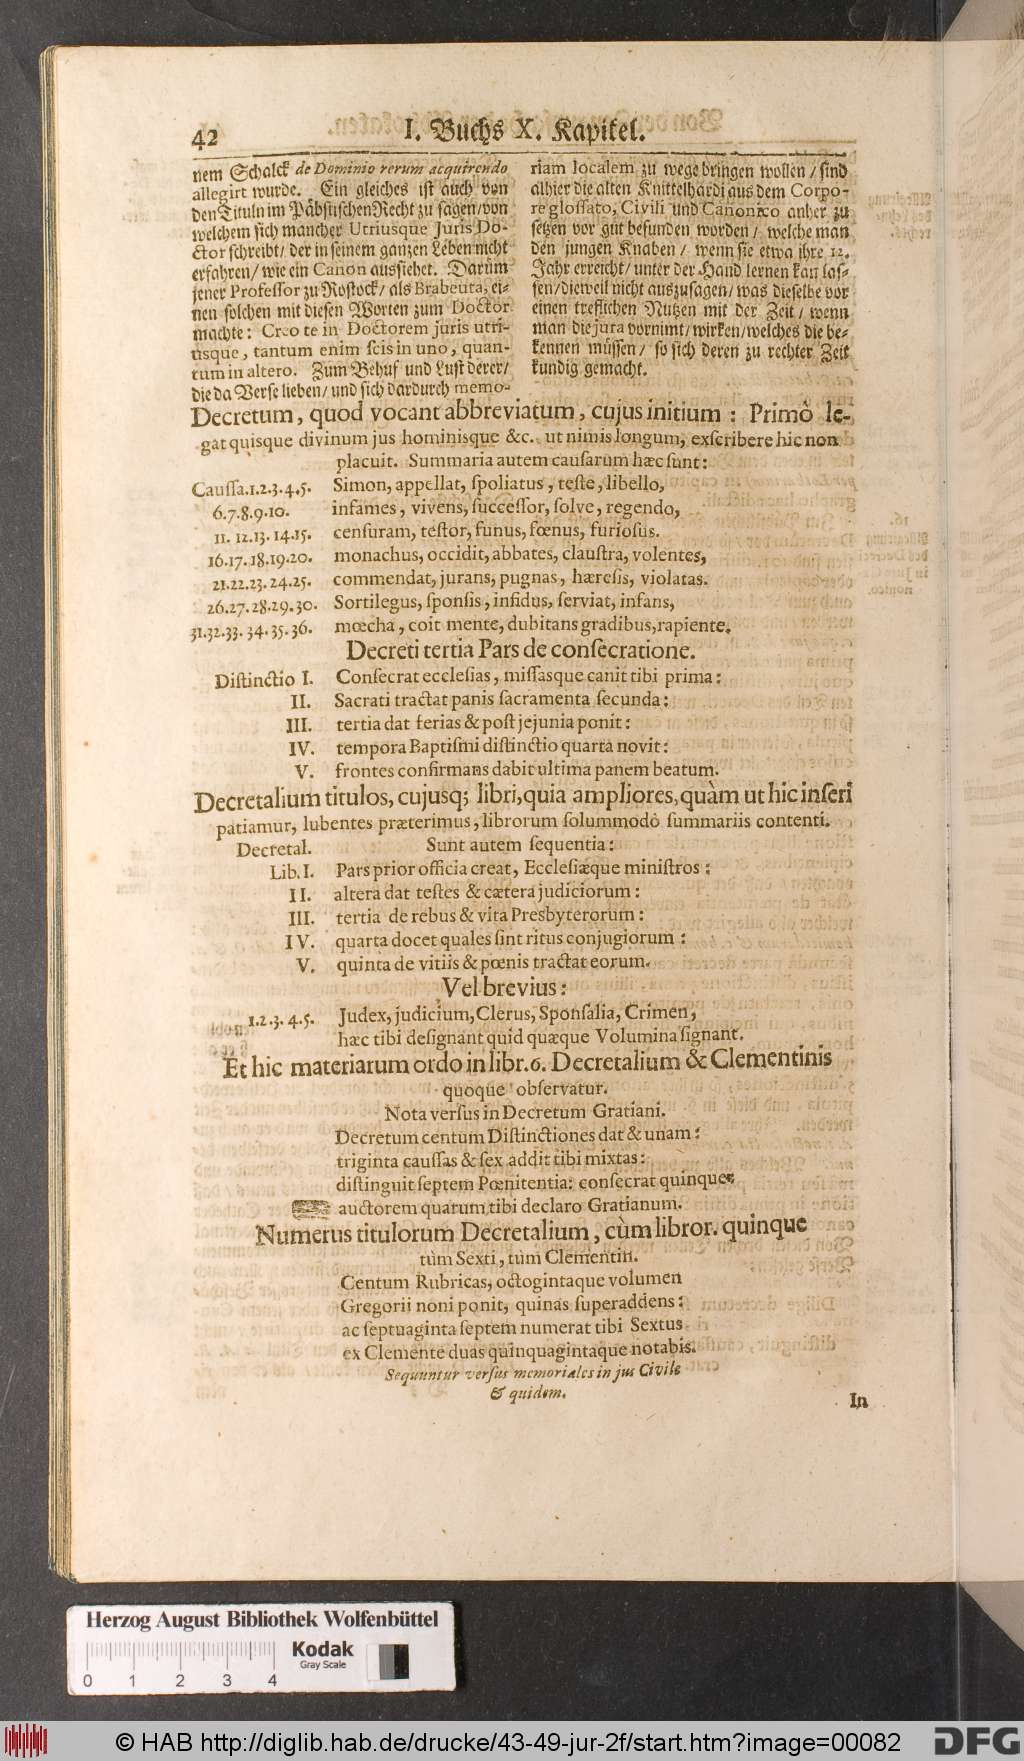 42
I. Buchs X. Kapitel.
nem Schalck de Dominio rerum acquirendo
allegirt wurde. Ein gleiches ist auch von
den Tituln im Päbstischen Recht zu sagen/ von
welchem sich mancher Utriusque Juris Do-
ctor schreibt/ der in seinem ganzen Leben nicht
erfahren/ wie ein Canon aussiehet. Darům
jener Professor zu Rostock/ als Brabeuta, ei-
nen solchen mit diesen Worten zum Doctor
machte: Creo te in Doctorem juris utri-
usque, tantum enim scis in uno, quan-
tum in altero. Zum Behuf und Lust derer/
die da Verse lieben/ und sich dardurch memo-
riam localem zu wege bringen wollen/ sind
alhier die alten Knittelhardi aus dem Corpo-
re glossato, Civili und Canonico anher zu
setzen vor gut befunden worden/ welche man
den jungen Knaben/ wenn sie etwa ihre 12.
Jahr erreicht/ unter der Hand lernen kan las-
sen/ dieweil nicht auszusagen/ was dieselbe vor
einen treflichen Nutzen mit der Zeit/ wenn
man die jura vornimt/ wirken/ welches die be-
kennen müssen/ so sich deren zu rechter Zeit
kundig gemacht.
Decretum, quod vocant abbreviatum, cujus initium : Primò le-
gat quisque divinum jus hominisque &c. ut nimis longum, exscribere hic non
placuit. Summaria autem causarum hæc sunt:
Caussa.1.2.3.4.5. Simon, appellat, spoliatus, teste, libello,
6.7.8.9.10. infames, vivens, successor, solve, regendo,
11. 12.13. 14.15. censuram, testor, funus, fœnus, furiosus.
16.17.18.19.20. monachus, occidit, abbates, claustra, volentes,
21.22.23.24.25. commendat, jurans, pugnas, hæresis, violatas.
26.27.28.29.30. Sortilegus, sponsis, infidus, serviat, infans,
31.32.33. 34.35.36. mœcha, coit mente, dubitans gradibus, rapiente.
Decreti tertia Pars de consecratione.
Distinctio I. Consecrat ecclesias, missasque canit tibi prima:
II. Sacrati tractat panis sacramenta secunda:
III. tertia dat ferias & post jejunia ponit:
IV. tempora Baptismi distinctio quarta novit:
V. frontes confirmans dabit ultima panem beatum.
Decretalium titulos, cujusq; libri, quia ampliores, quàm ut hic inseri
patiamur, lubentes præterimus, librorum solummodò summariis contenti.
Decretal. Sunt autem sequentia:
Lib. I. Pars prior officia creat, Ecclesiæque ministros:
II. altera dat testes & cætera judiciorum:
III. tertia de rebus & vita Presbyterorum:
IV. quarta docet quales sint ritus conjugiorum:
V. quinta de vitiis & pœnis tractat eorum.
Vel brevius:
1.2.3.4.5. Judex, judicium, Clerus, Sponsalia, Crimen,
hæc tibi designant quid quæque Volumina signant.
Et hic materiarum ordo in libr. 6. Decretalium & Clementinis
quoque observatur.
Nota versus in Decretum Gratiani.
Decretum centum Distinctiones dat & unam:
triginta caussas & sex addit tibi mixtas:
distinguit septem Pœnitentia: consecrat quinque:
auctorem quarum tibi declaro Gratianum.
Numerus titulorum Decretalium, cùm libror. quinque
tùm Sexti, tùm Clementin.
Centum Rubricas, octogintaque volumen
Gregorii noni ponit, quinas superaddens:
ac septuaginta septem numerat tibi Sextus
ex Clemente duas quinquagintaque notabis.
Sequuntur versus memoriales in jus Civile
& quidem.
In
Herzog August Bibliothek Wolfenbüttel
Kodak
Gray Scale
0 1 2 3 4
© HAB http://diglib.hab.de/drucke/43-49-jur-2f/start.htm?image=00082
DFG